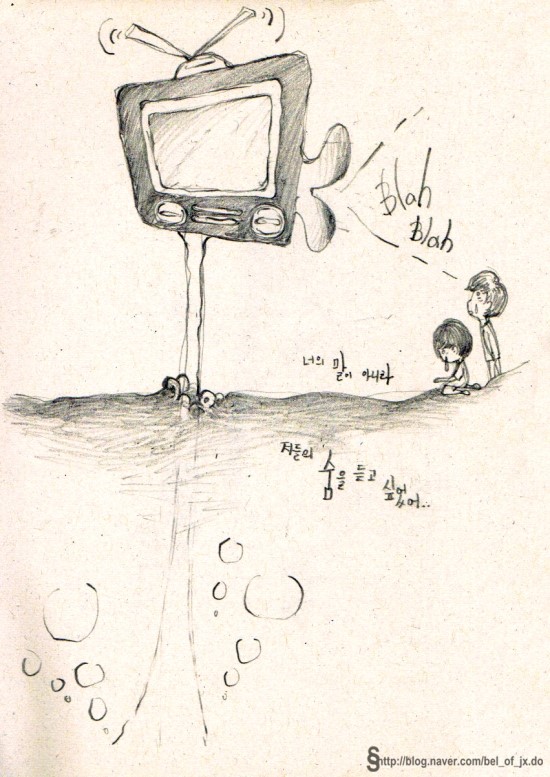 Blah
Blah
너의 말이 아니라
저들의 숨을 듣고 싶었어..
http://blog.naver.com/bel_of_jx.do